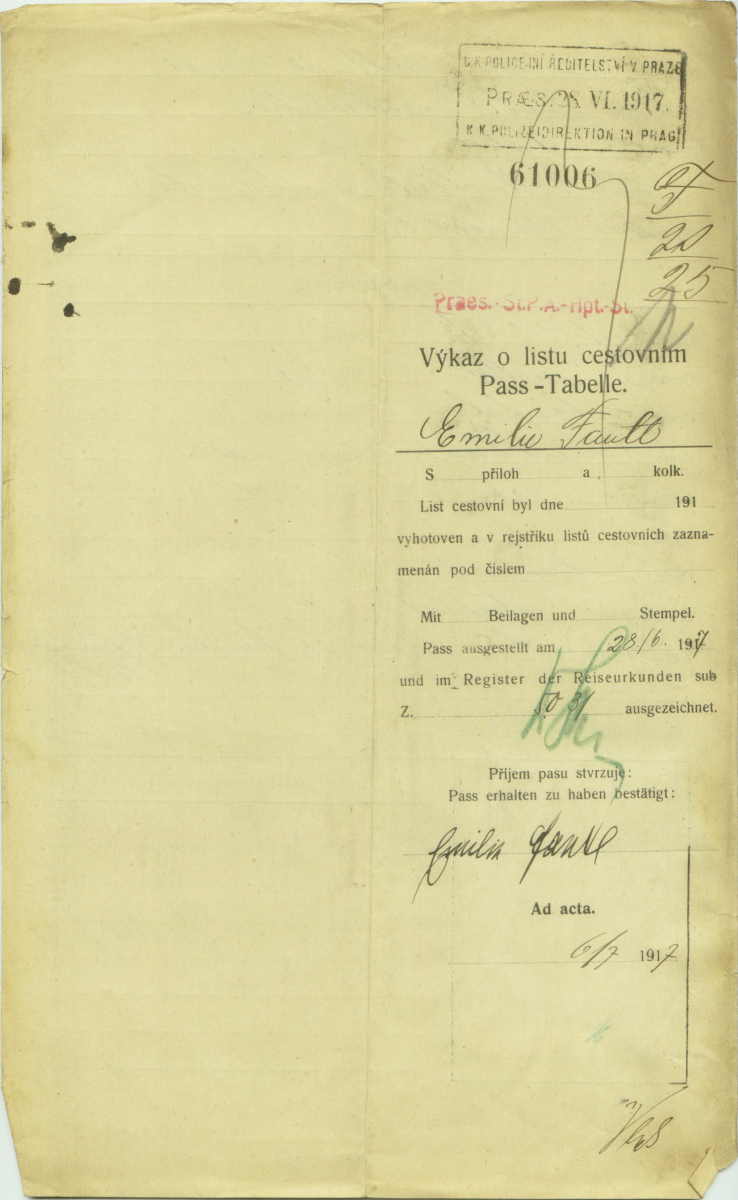 K.K. POLICEJNÍ ŘEDITELSTVÍ V PRAZE
PRÆS. 28. VI. 1917.
K.K. POLIZEIDIREKTION IN PRAG
61006
F
20
25
Praes.-St.P.A.-Hpt.-St.
Výkaz o listu cestovním
Pass-Tabelle.
Emilie Fantl
S příloh a kolk.
List cestovní byl dne 191
vyhotoven a v rejstříku listů cestovních zazna-
menán pod číslem
Mit Beilagen und Stempel.
Pass ausgestellt am 28/6. 1917
und im Register der Reiseurkunden sub
Z. ausgezeichnet.
Příjem pasu stvrzuje:
Pass erhalten zu haben bestätigt:
Emilie Fantl
Ad acta.
6/7 1917